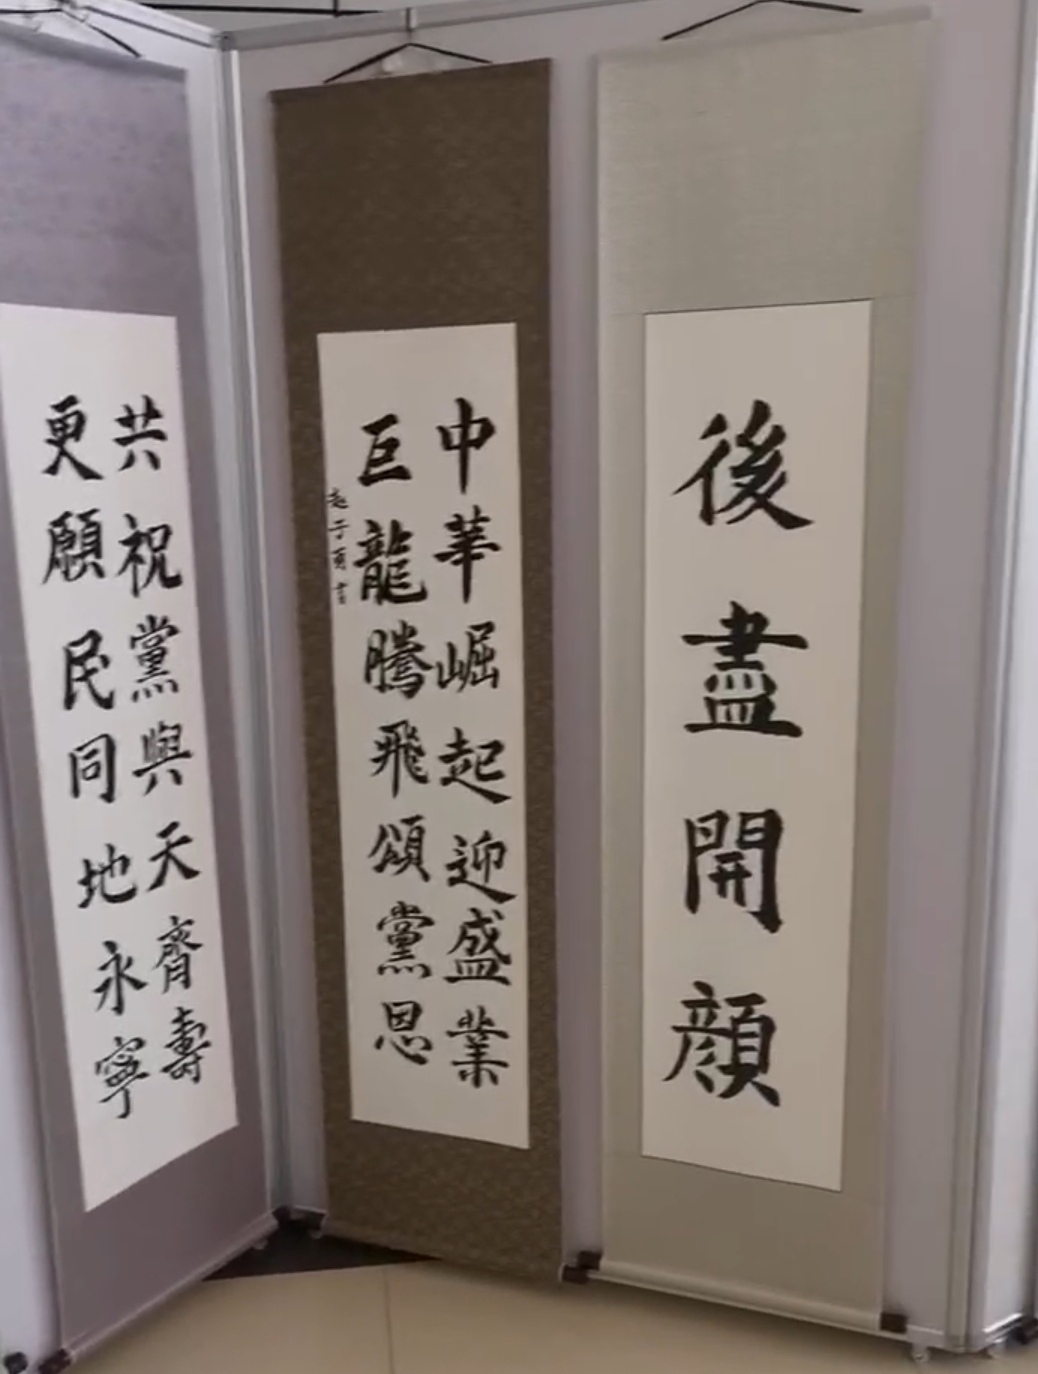 後盡開顔
中華崛起迎盛業
巨龍騰飛頌黨恩
共祝黨與天齊壽
更願民同地永寧